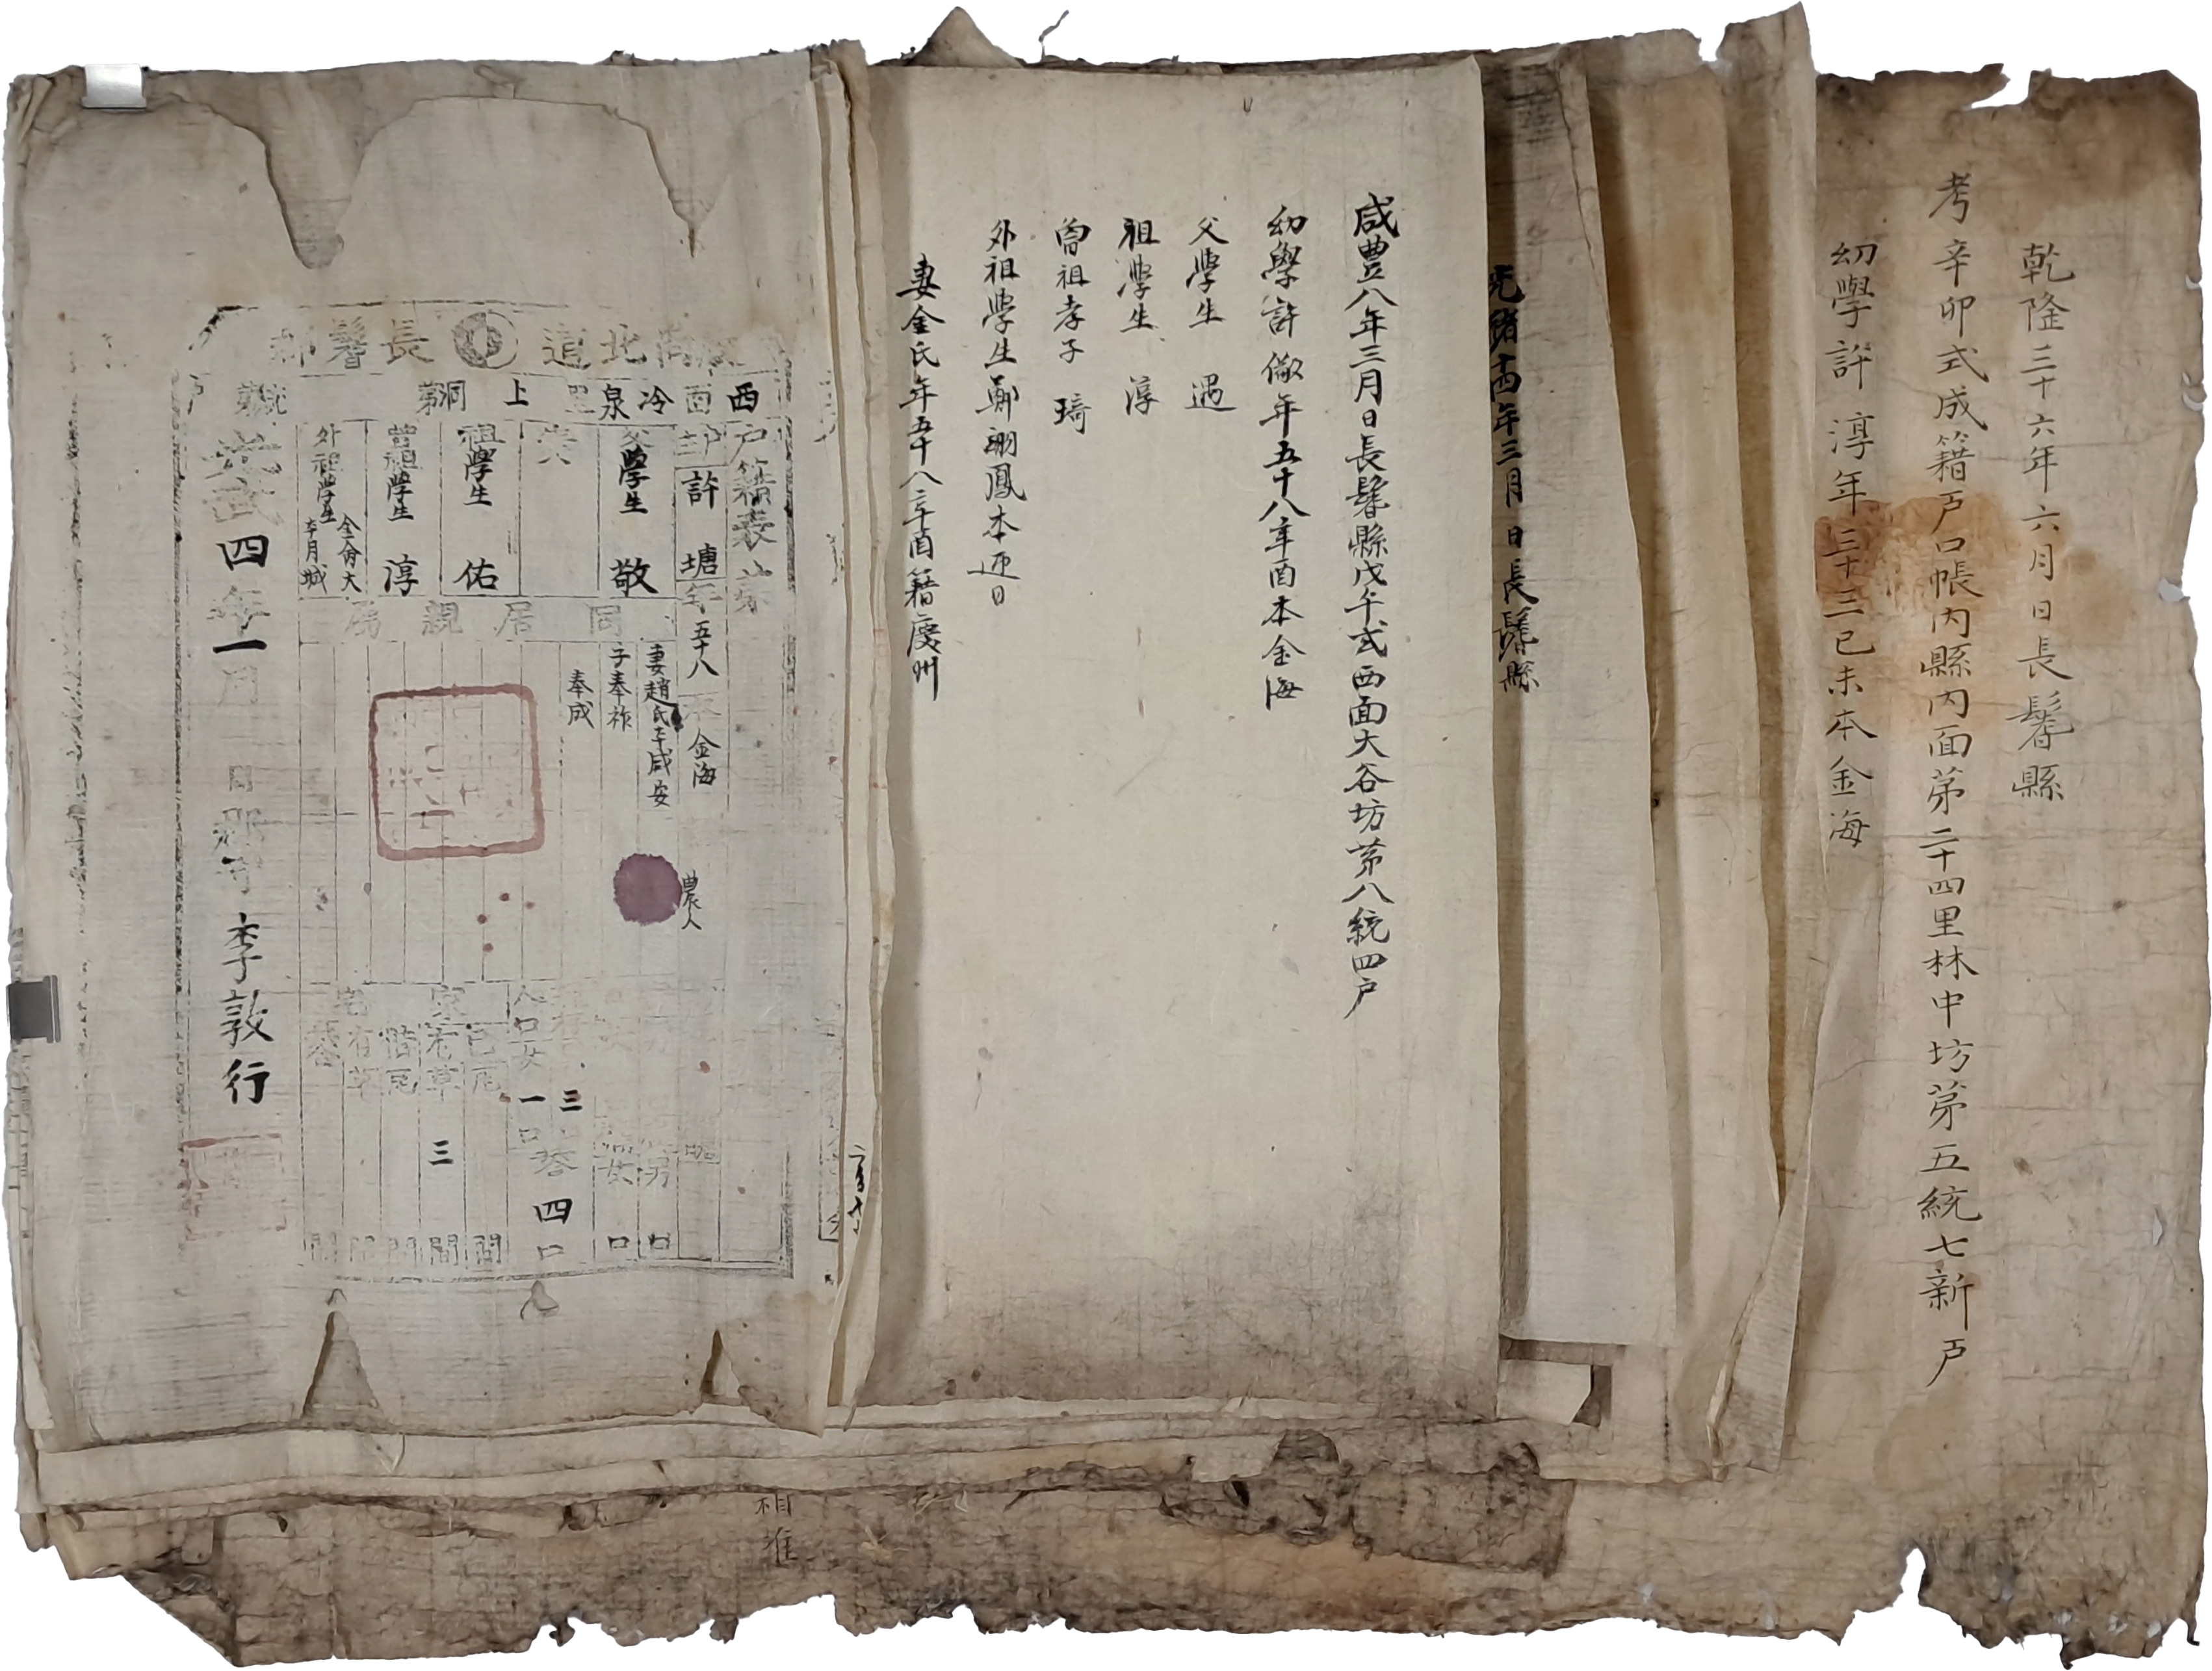 乾隆三十六年六月日長鬐縣
考辛卯式成籍戶口帳內縣內面第二十四里林中坊第五統七新戶
幼學許淳年三十三己未本金海
光緖十四年三月日長鬐縣
咸豊八年三月日長鬐縣戊午式西面大谷坊第八統四戶
幼學許儆年五十八辛酉本金海
父學生遇
祖學生淳
曾祖孝子琦
外祖學生鄭翊鳳本迎日
妻金氏年五十八辛酉籍慶州
慶尙北道長鬐郡
西面冷泉里上洞第統第戶
戶籍表第
戶主許塘年五十八本金海
農人
父學生敬
祖學生佑
曾祖學生淳
外祖學生金命大本月城
同居親屬
妻趙氏本咸安
子奉祚
奉成
男口
女口
人口男三口
女一口
共合四口
家宅
己瓦間
有草三間
借瓦間
有草間
共合間
光武四年一月日郡守李敦行
相准